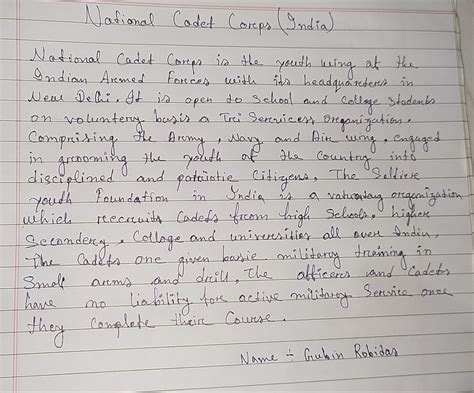 National Cadet Corps (India)
National Cadet Corps is the youth wing of the
Indian Armed Forces with its headquarters in
New Delhi. It is open to School and College Students
on voluntery basis a Tri Services Organization.
Comprising the Army, Navy and Air wing, engaged
in grooming the youth of the Country into
disciplined and patriotic Citizens, The Soldier
youth Foundation in India is a voluntary organization
which recruits Cadets from high Schools, higher
Secondery, Collage and universities all over India,
The Cadets one given basic military training in
Small arms and drill, The officers and Cadets
have no liability for active military Service once
they Complete their Course.
Name ÷ Gubin Robidas